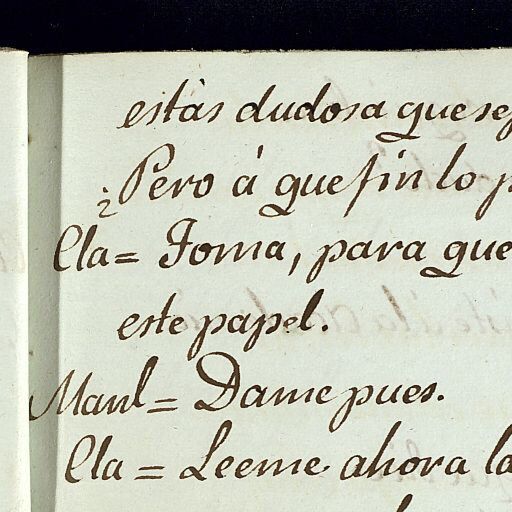 estàs dudosa que
¿Pero á que fin lo
Cla= Toma, para que
este papel.
Maul= Dame pues.
Cla= Leeme ahora la